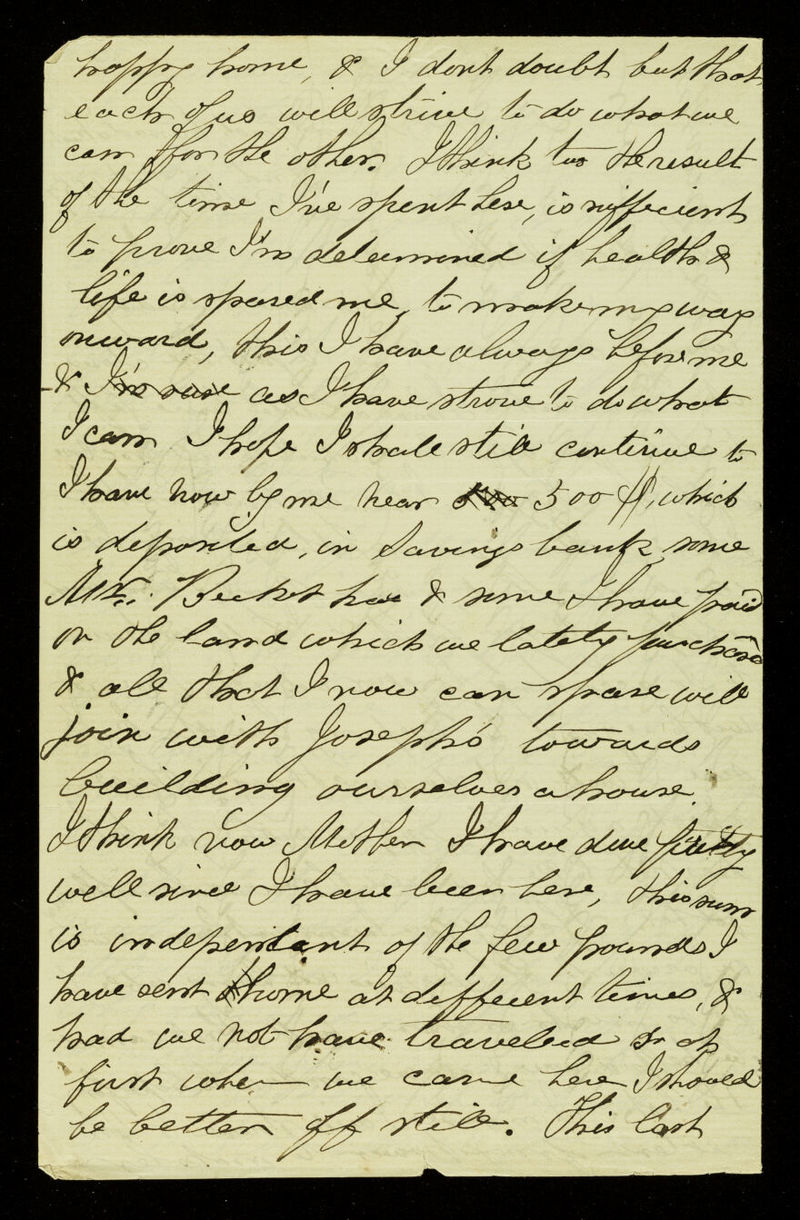 happy home, & I dont doubt but that
each of us will strive to do what we
can for the other. I think too the result
of the time I've spent here, is sufficient
to prove I'm determined if health &
life is spared me, to make my way
onward, this I have always before me
& I'm sure as I have strove to do what
I can I hope I shall still continue to
I have now by me near 500 $, which
is deposited, in Savings bank, some
Mr. Becket has & some I have paid
on the land which we lately purchased
& all that I now can spare will
join with Joseph's towards
building ourselves a house.
I think now Mother I have done pretty
well since I have been here, this sum
is independant of the few pounds I
have sent home at different times, &
had we not have traveled so at
first when we came here I should
be better off still. This last